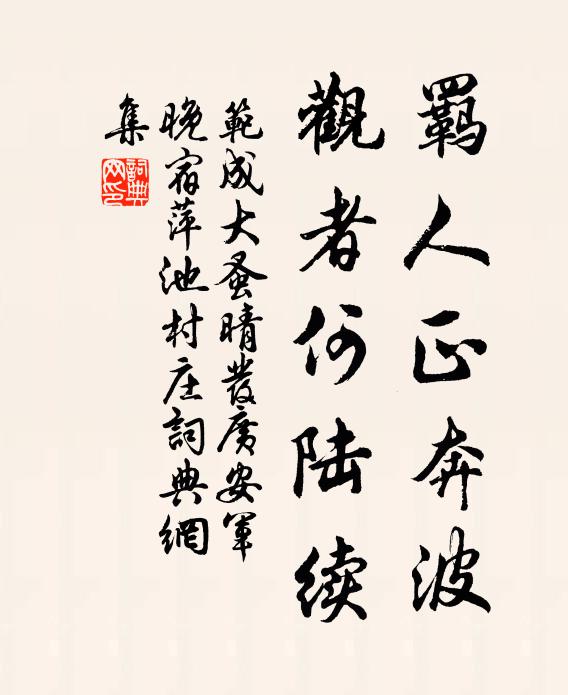 羈人正奔波
觀者何陆续
範成大蚤晴發廣安軍
晚宿萍池村庄詞典網
集
詞典
网印